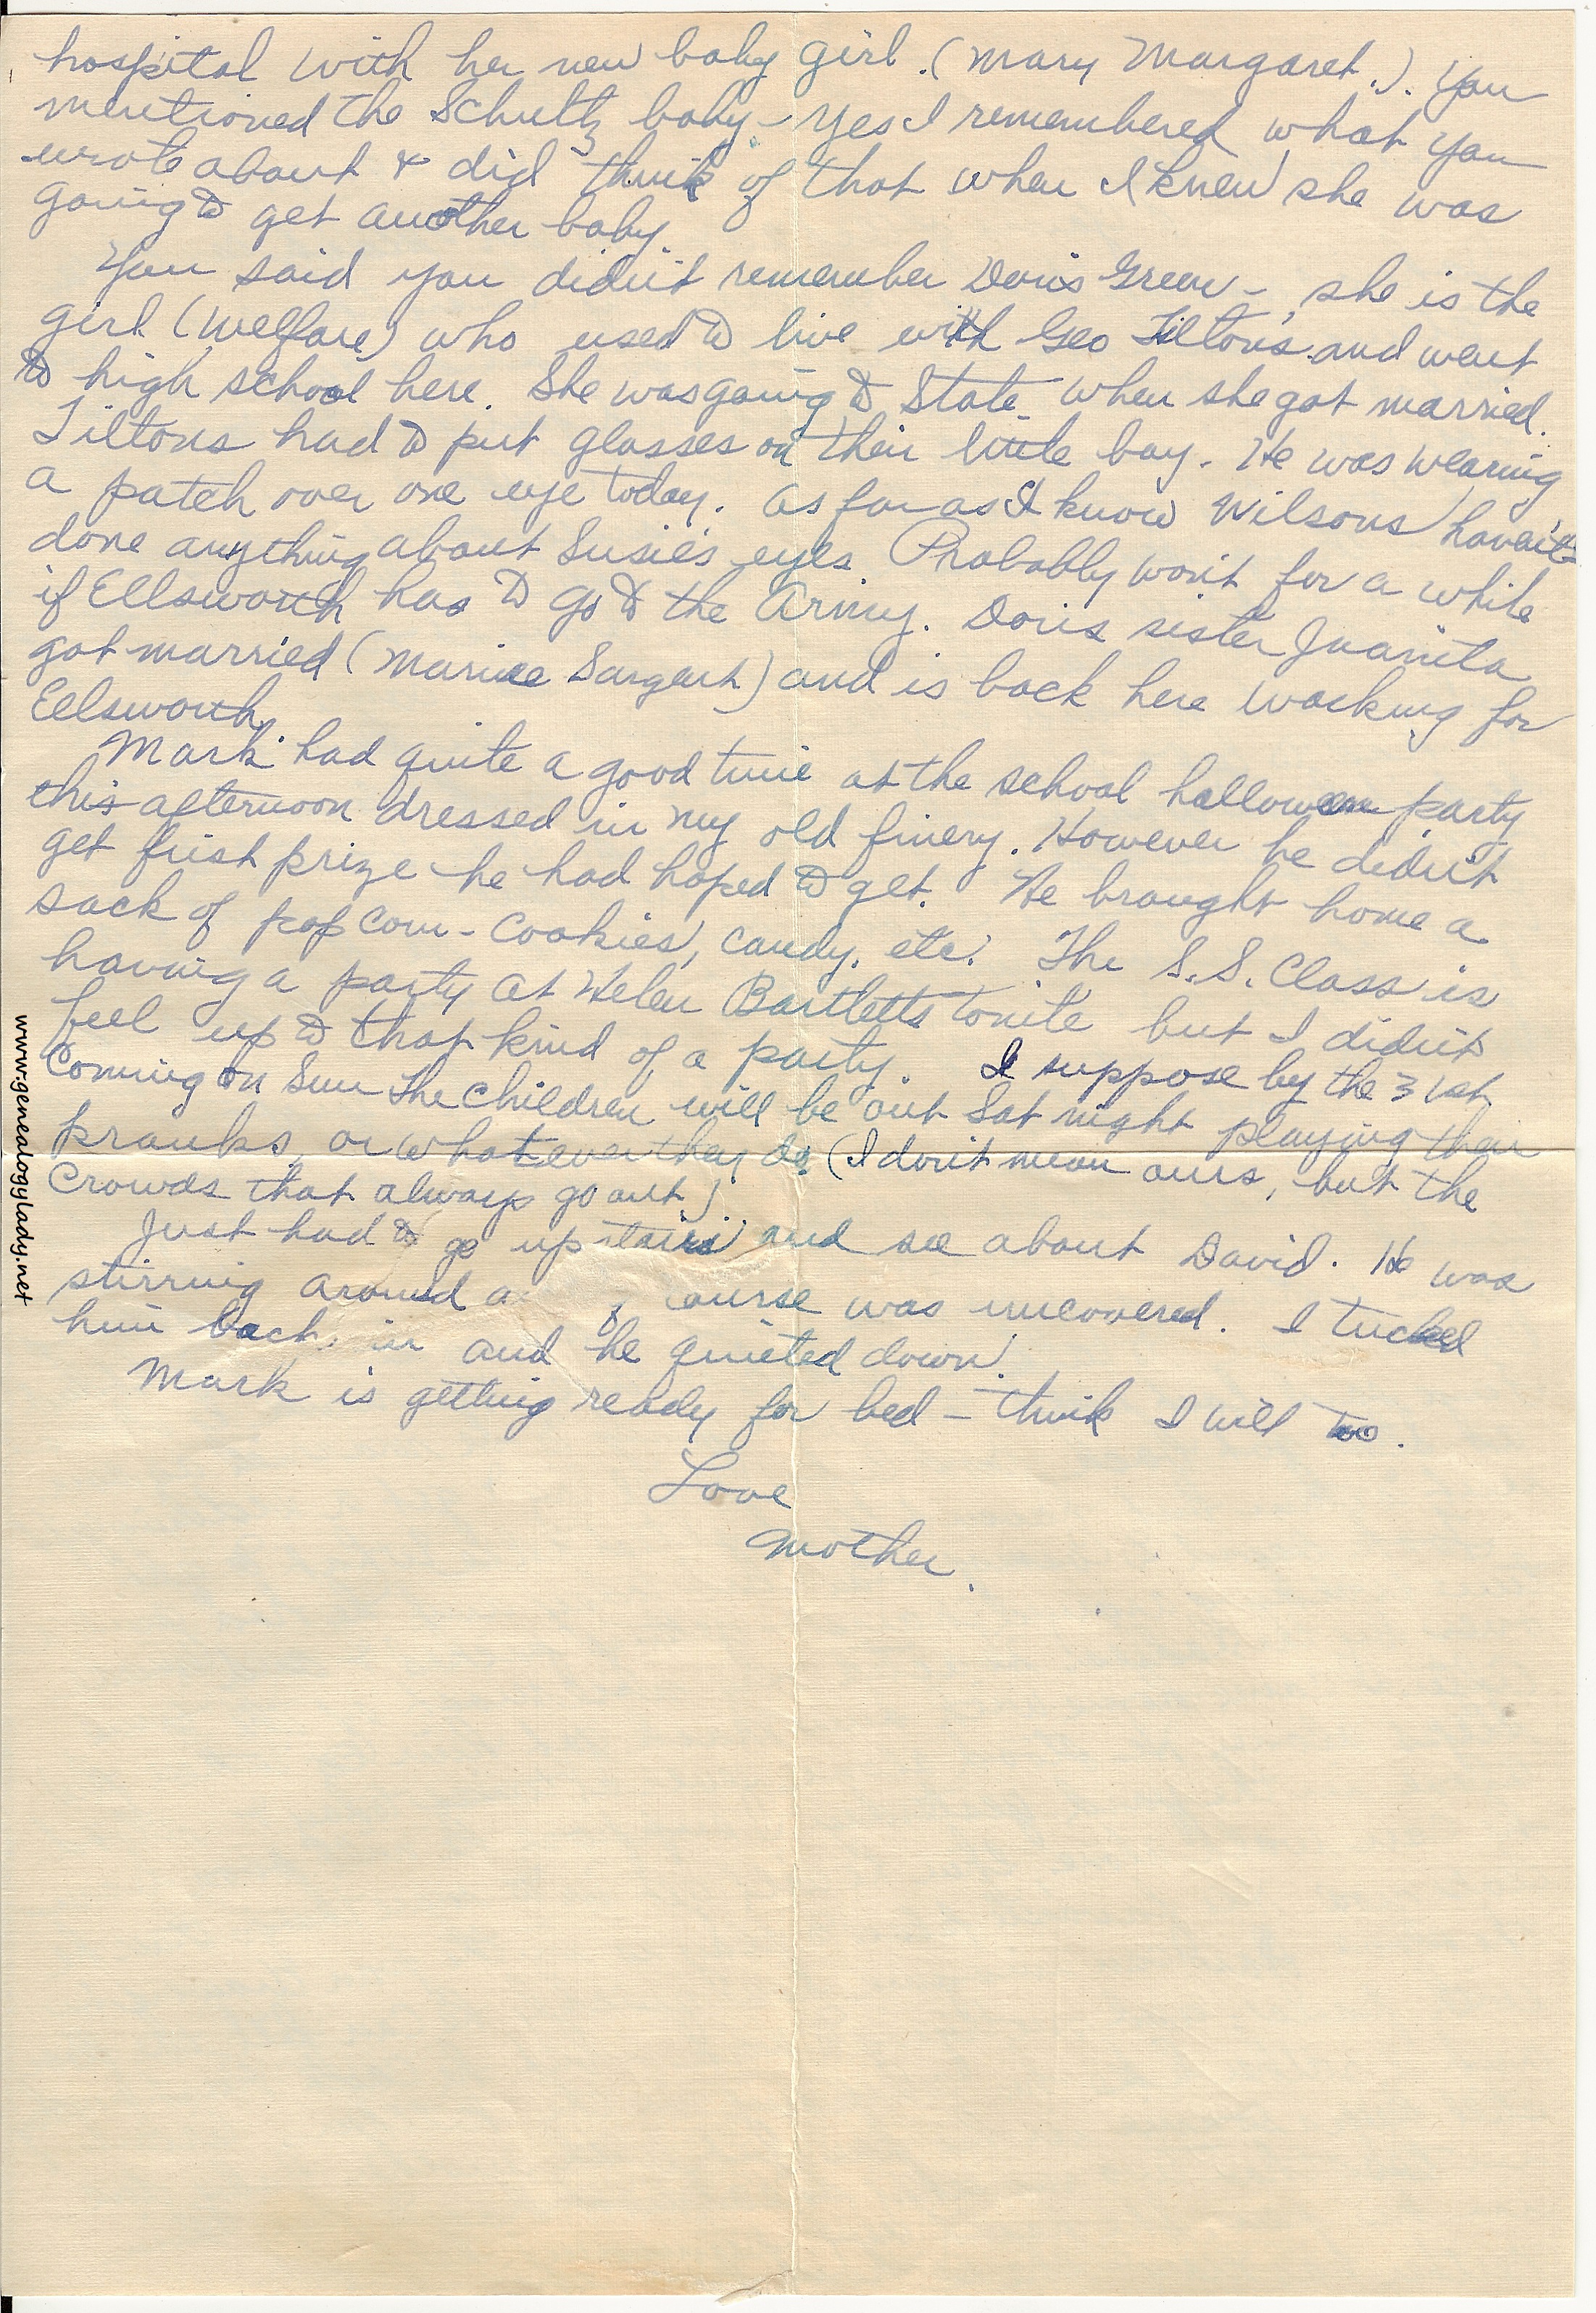 hospital with her new baby girl. (Mary Margaret.). You
mentioned the Schultz baby - Yes I remembered what you
wrote about & did think of that when I knew she was
going to get another baby.
You said you didn't remember Doris Green -, she is the
girl (Welfare) who used to live with Geo Tilton's and went
to high school here. She was going to State when she got married.
Tiltons had to put glasses on their little boy. He was wearing
a patch over one eye today. As far as I know Wilsons haven't
done anything about Susie's eyes. Probably won't for a while
if Ellsworth has to go to the Army. Doris sister Juanita
got married ( Sargent) and is back here working for
Ellsworth.
Mark had quite a good time at the school halloween party
this afternoon dressed in my old finery. However he didn't
get first prize he had hoped to get. He brought home a
sack of pop corn - cookies, candy, etc. The S.S. Class is
having a party at Helen Bartletts tonite but I didn't
feel up to that kind of a party. I suppose by the 31st
coming on Sun the children will be out Sat night playing their
pranks, or whatever they do, (I don't mean ours, but the
crowds that always go out.)
Just had to go upstairs and see about David. He was
stirring around a course was uncovered. I tucked
him back in and he quieted down.
Mark is getting ready for bed - think I will too.
Love
Mother.
www.genealogylady.net